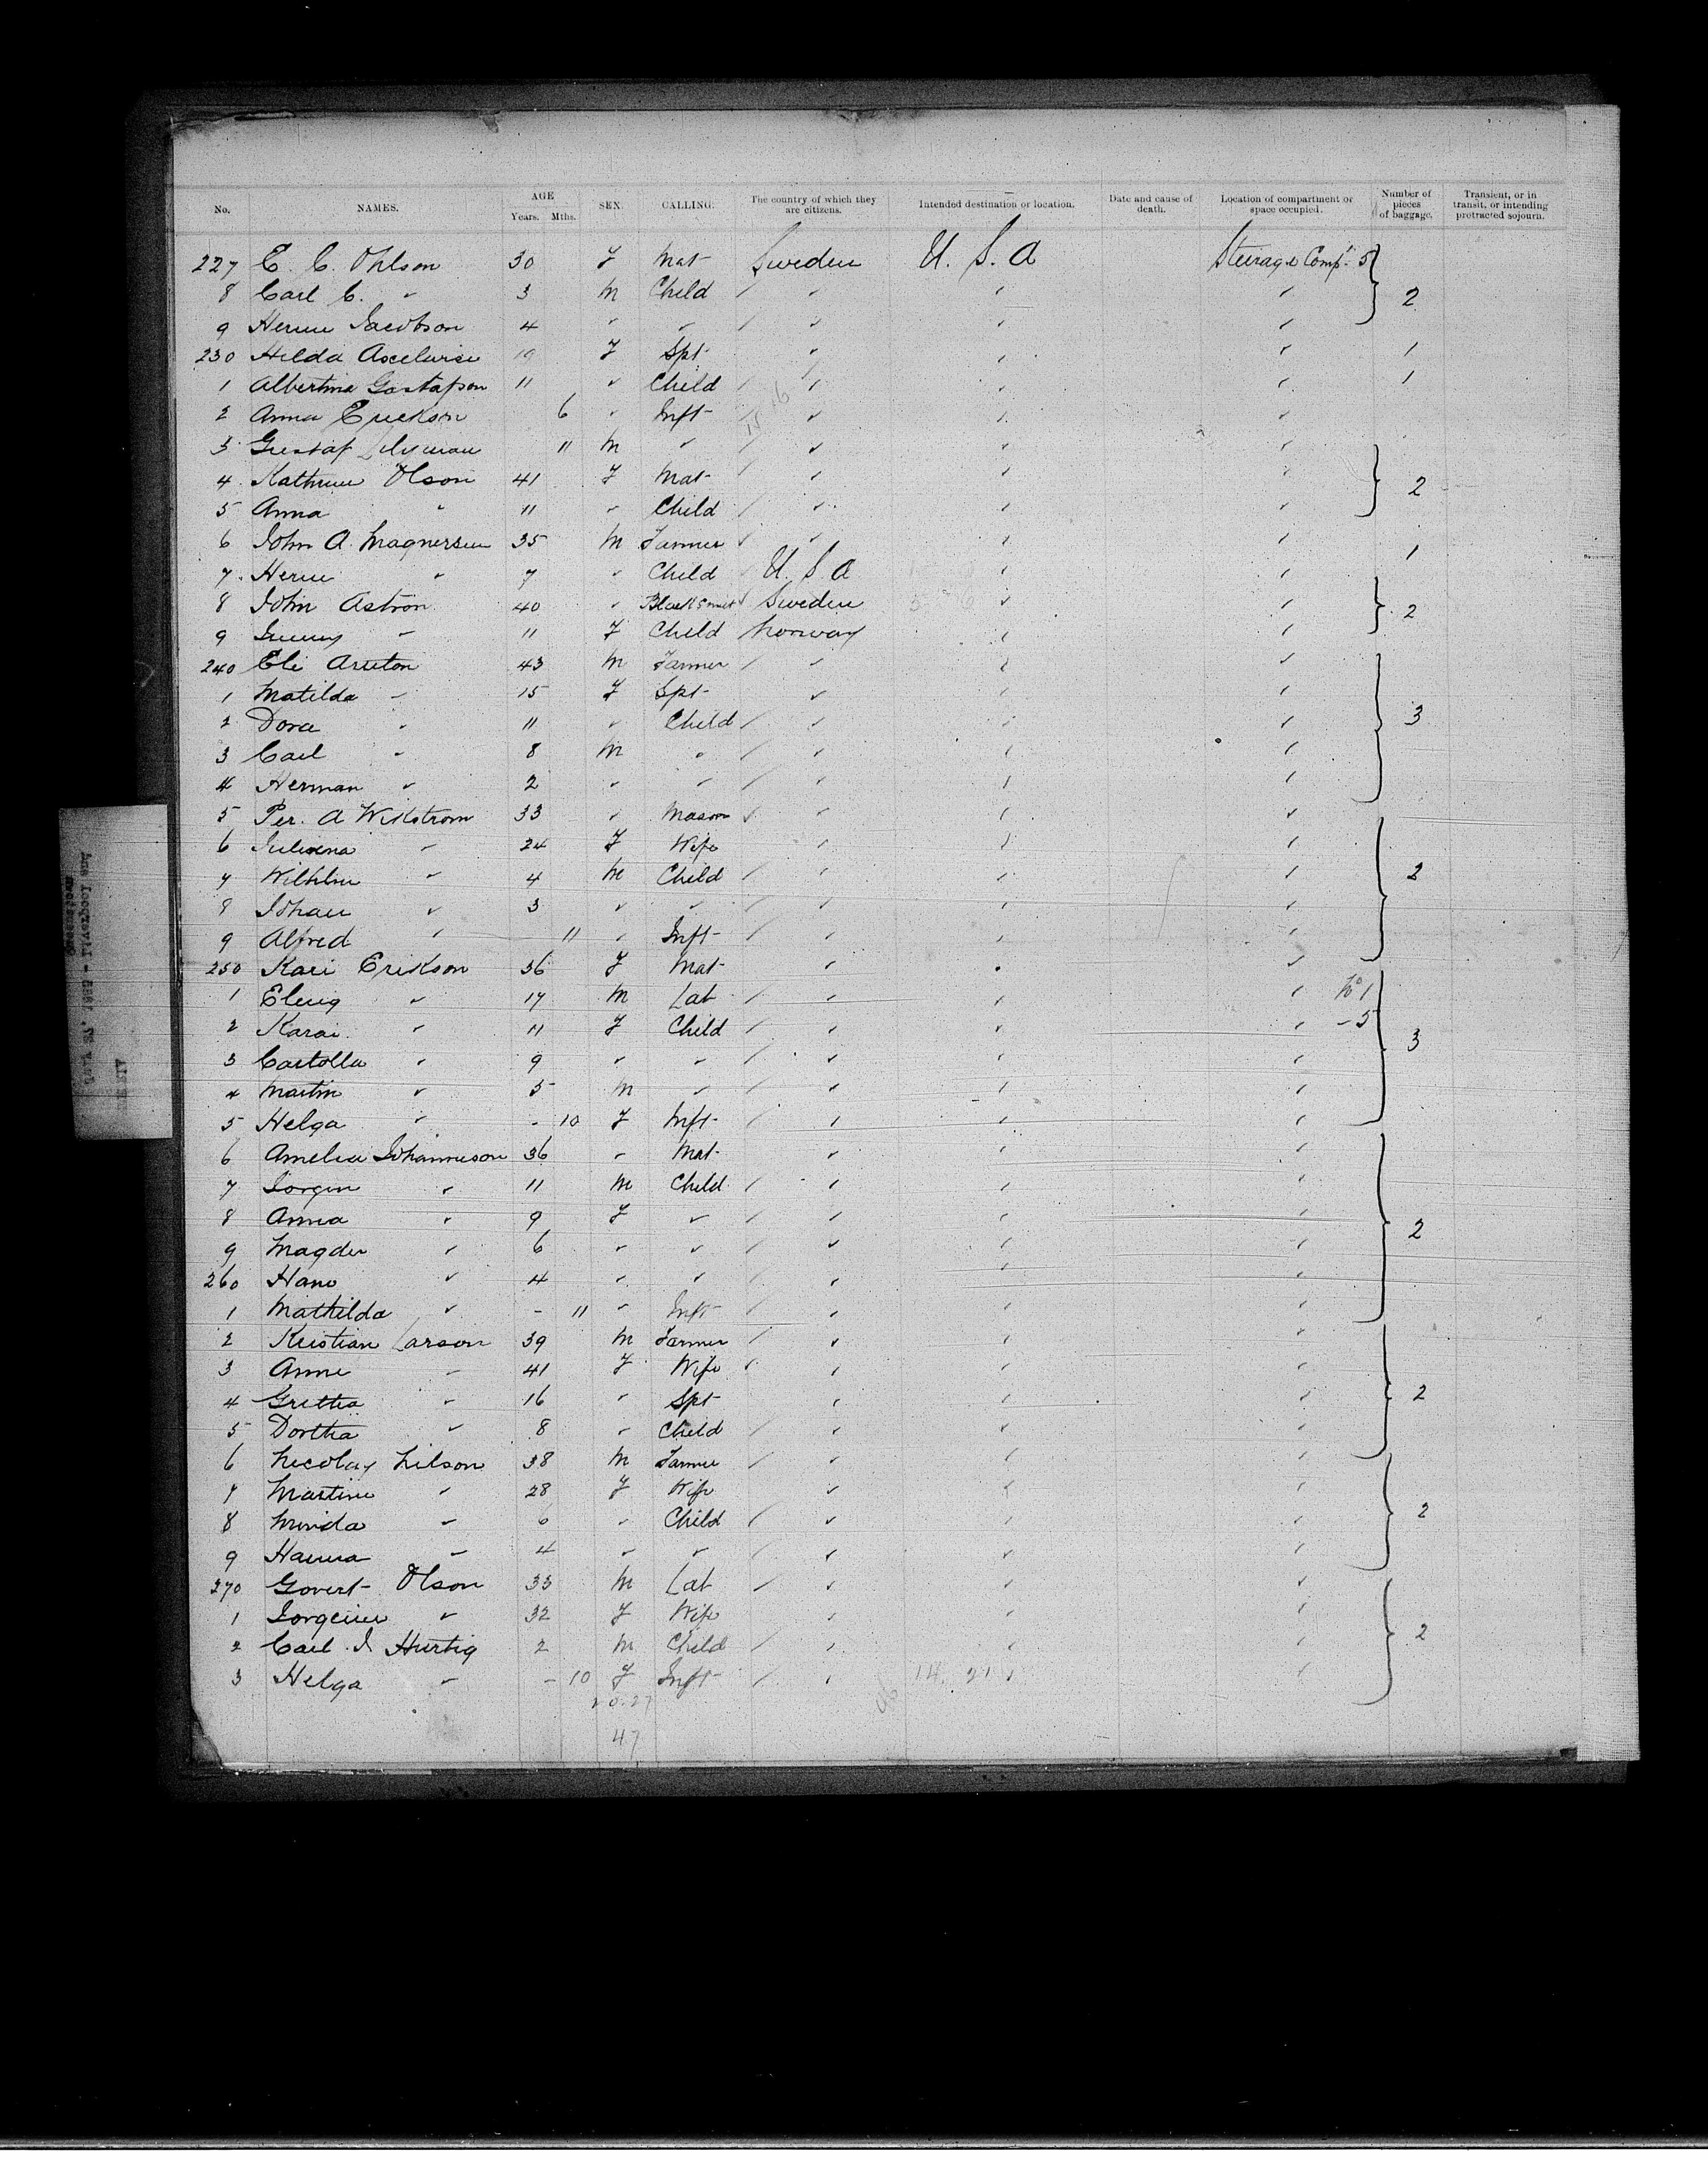 No. NAMES. AGE Years. Mths. SEX. CALLING. The country of which they are citizens. Intended destination or location. Date and cause of death. Location of compartment or space occupied. Number of pieces of baggage. Transient, or in transit, or intending protracted sojourn.
227 C. C. Ohlson 30 F Mat Sweden U. S. A Steerage Comp't 5
8 Carl C. " 3 M Child " " " 2
9 Jacobson 4 " " " " "
230 Hilda 19 F Spt " " " 1
1 Albertina Gustafson 11 " Child " " " 1
2 Anna Erickson 6 " Inft " " "
3 Gustaf 11 M " " " "
4 Kathrine Olson 41 F Mat " " " 2
5 Anna " 11 " Child " " "
6 John A. Magnersen 35 M Farmer " " " 1
7 " 7 " Child U. S. A " "
8 John Astron 40 " Blacksmit Sweden " " 2
9 " 11 F Child Norway " "
240 Eli 43 M Farmer " " "
1 Matilda " 15 F Spt " " "
2 Dora " 11 " Child " " " 3
3 Carl " 8 M " " " "
4 Herman " 2 " " " " "
5 Per. A Wikstrom 33 " Mason " " "
6 " 24 F Wife " " "
7 Wilhelm " 4 M Child " " " 2
8 Johan " 3 " " " " "
9 Alfred " 11 " Inft " " "
250 Kari Erikson 36 F Mat " " "
1 " 17 M Lab " " " No 1
2 Karai " 11 F Child " " " - 5 3
3 " 9 " " " " "
4 Martin " 5 M " " " "
5 Helga " - 10 F Inft " " "
6 Amelia Johanneson 36 " Mat " " "
7 Jorgen " 11 M Child " " "
8 Anna " 9 F " " " "
9 " 6 " " " " " 2
260 Hans " 4 " " " " "
1 Mathilda " - 11 " Inft " " "
2 Kristian Larson 39 M Farmer " " "
3 Anne " 41 F Wife " " "
4 Grettia " 16 " Spt " " " 2
5 Dorthia " 8 " Child " " "
6 Nicolay Nilson 38 M Farmer " " "
7 Martine " 28 F Wife " " "
8 Minda " 6 " Child " " " 2
9 Hanna " 4 " " " " "
270 Govert Olson 33 M Lab " " "
1 " 32 F Wife " " "
2 Carl J Hurtig 2 M Child " " " 2
3 Helga " - 10 F Inft " 14 21 "
20-27
47